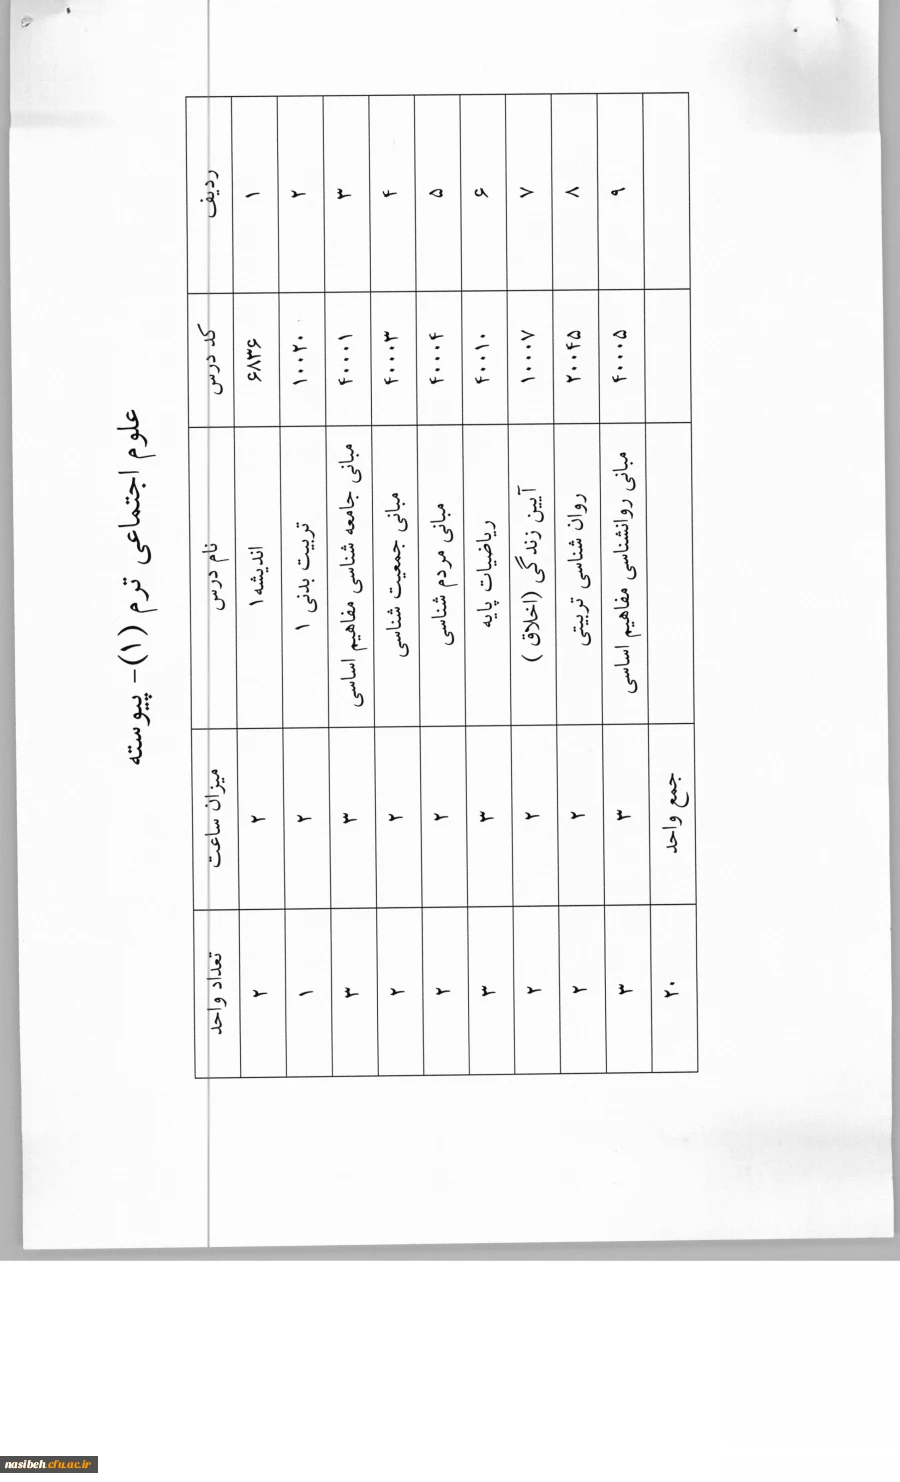 علوم اجتماعی ترم (۱)- پیوسته
ردیف کد درس نام درس میزان ساعت تعداد واحد
۱ ۶۸۳۶ اندیشه۱ ۲ ۲
۲ ۱۰۰۲۰ تربیت بدنی ۱ ۲ ۱
۳ ۴۰۰۰۱ مبانی جامعه شناسی مفاهیم اساسی ۳ ۳
۴ ۴۰۰۰۳ مبانی جمعیت شناسی ۲ ۲
۵ ۴۰۰۰۴ مبانی مردم شناسی ۲ ۲
۶ ۴۰۰۱۰ ریاضیات پایه ۳ ۳
۷ ۱۰۰۰۷ آیین زندگی (اخلاق ) ۲ ۲
۸ ۲۰۰۴۵ روان شناسی تربیتی ۲ ۲
۹ ۴۰۰۰۵ مبانی روانشناسی مفاهیم اساسی ۳ ۳
جمع واحد ۲۰
nasibeh.cfu.ac.ir